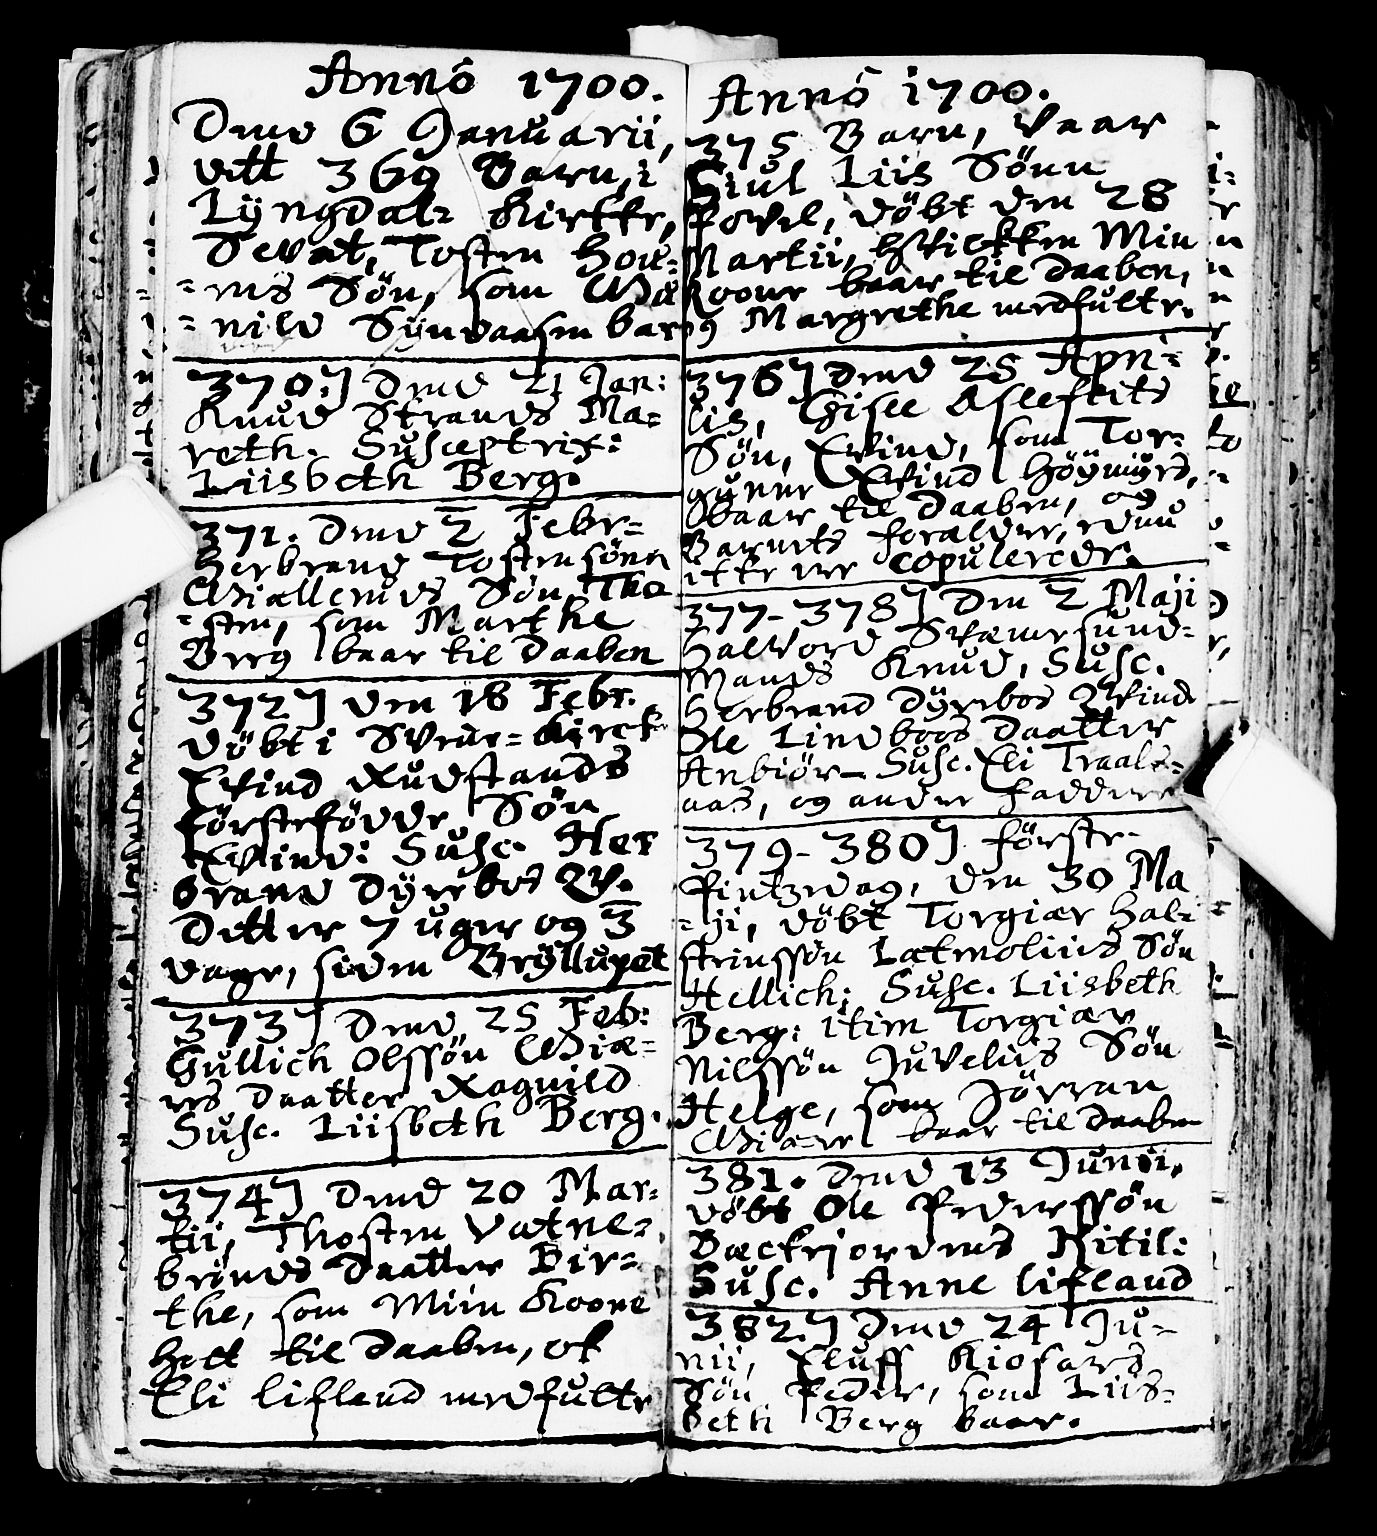 Anno 1700.
Dend 6 Januarii,
vdtt 369 Barn, i
Lÿngdals Kirkke,
Sevat, Tosten Hou-
-ens Søn, som Gu
-nild Sÿnvaasen bar
370.] Dend 21 Jan:
Knud Strands Ma-
reth. Susceptrix:
Liisbeth Berg.
371. Dend 2 Febr-
Herbrand Tostensønn
Giællerud's Søn, Tho
-sten, som Marthe
Berg baar til Daaben
372] den 18 Febr.
döbt i Svene-Kirck
Evind Rudstands
förstefödde Søn
Evind: Susc. Her
brand Dÿrebos Qv.
Dett er 7 uger og 3
dage, siden Brÿllupet
373] Dend 25 Feb:
Gullich Olssön Giæ-
rs Daatter Ragnild
Susc. Liisbeth Berg.
374] Dend 20 Mar-
tii, Thosten Vatne-
brönds Daatter Bir-
the, som Miin Koone
holt til Daaben, ok
Eli Lifland medfulte
Anno 1700.
375 Barn, vaar
Giul Liis Sönn
Povel, döbt den 28
Martii, hvilkken Min
Koone baar til Daaben,
og Margrethe medfulte.
376] Dend 25 Apri-
lis, Gisle Aslefteds
Søn, Evind, som Tor-
gunne Evind Höÿmÿrs,
baar til Daaben, og
Barnets forældre, endnu
ikke ere copulerede.
377-378] Den 2 Maji
Halvord Skæmesund-
Mands Knud, Susc.
Herbrand Dÿrebos Qvinde
Ole Lindboos Daatter
Anbiör- Susc. Eli Traals-
aas, og andre Faddere
379-380] förste-
Pintzedag, den 30 Ma
-ji, döbt Torgiær Hal-
steinssøn Lætmoliies Søn
Hellich: Susc. Liisbeth
Berg: item Torgiær
Nilssøn Juveliis Søn
Helge, som Jörran
Giære baar til Daaben
381. Dend 13 Junii,
döbt Ole Pederssön
Bæckjordens Kitil:
Susc. Anne Lifland
382.] Dend 24 Ju-
nii, Eluff Kiosards
Søn Peder, som Liis-
beth Berg baar.